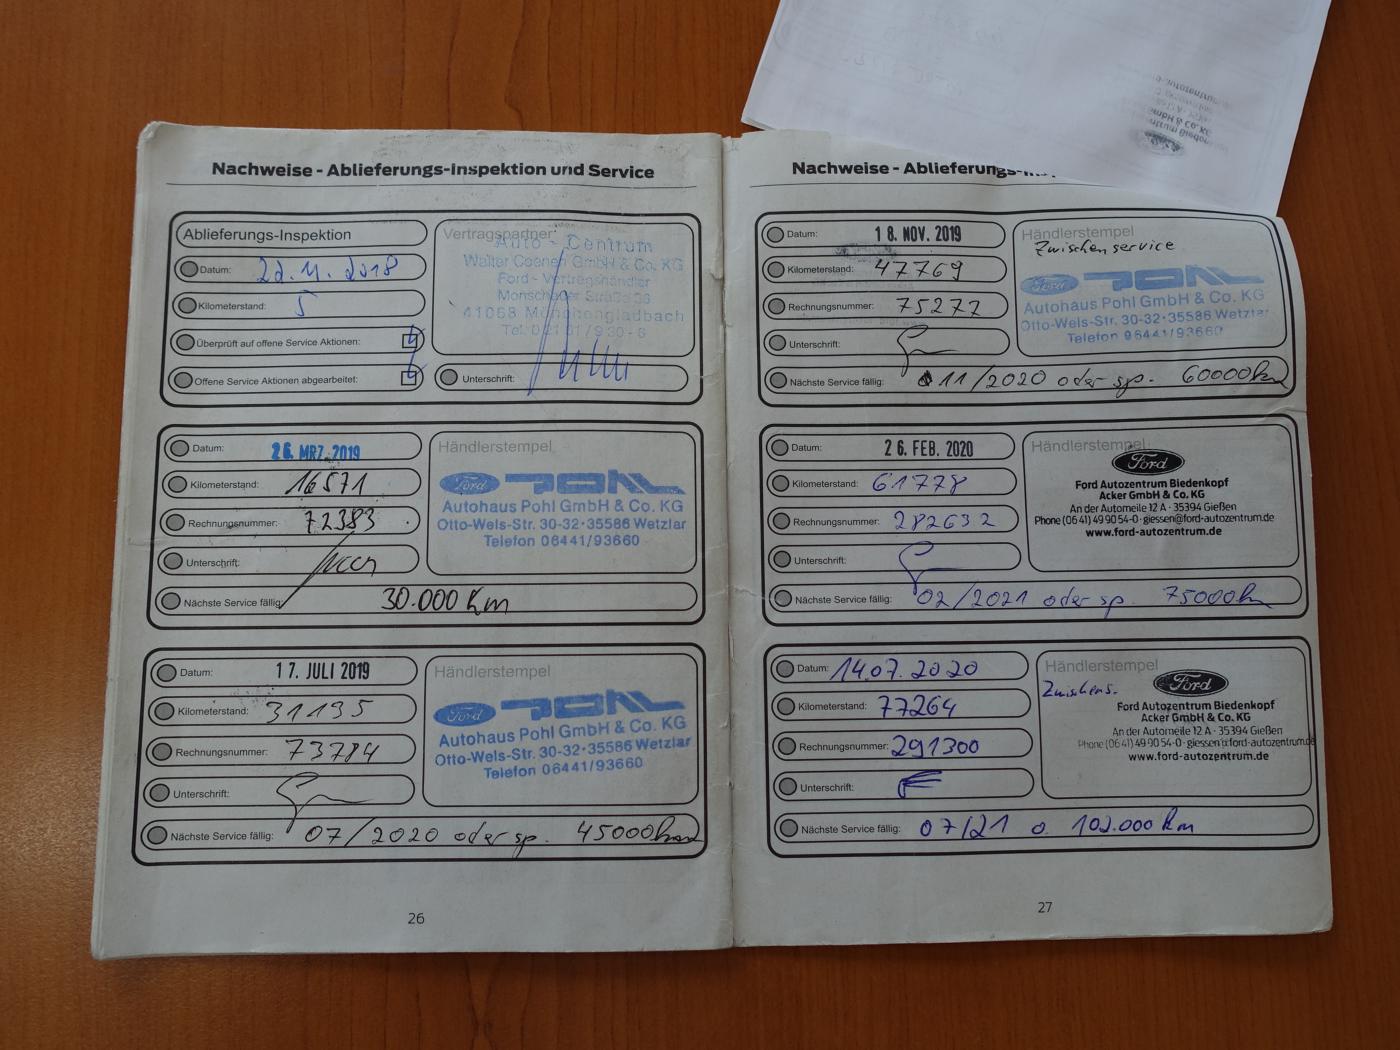 Nachweise - Ablieferungs-Inspektion und Service
Ablieferungs-Inspektion
Datum: 22.11.2018
Kilometerstand: 5
Überprüft auf offene Service Aktionen:
Offene Service Aktionen abgearbeitet:
Vertragspartner:
Auto - Centrum
Walter Coenen GmbH & Co. KG
Ford - Vertragshändler
Monschauer Straße 36
41068 Mönchengladbach
Tel. 0 21 61 / 9 30 - 6
Unterschrift:
Datum: 26. MRZ. 2019
Kilometerstand: 16571
Rechnungsnummer: 72383
Unterschrift:
Nächste Service fällig: 30.000 Km
Händlerstempel
Ford POHL
Autohaus Pohl GmbH & Co. KG
Otto-Wels-Str. 30-32 · 35586 Wetzlar
Telefon 06441/93660
Datum: 17. JULI 2019
Kilometerstand: 31195
Rechnungsnummer: 73784
Unterschrift:
Nächste Service fällig: 07/2020 oder sp. 45000km
Händlerstempel
Ford POHL
Autohaus Pohl GmbH & Co. KG
Otto-Wels-Str. 30-32 · 35586 Wetzlar
Telefon 06441/93660
26
Nachweise - Ablieferungs-
Datum: 18. NOV. 2019
Kilometerstand: 47769
Rechnungsnummer: 75277
Unterschrift:
Nächste Service fällig: 11/2020 oder sp. 60000km
Händlerstempel
Zwischenservice
Ford POHL
Autohaus Pohl GmbH & Co. KG
Otto-Wels-Str. 30-32 · 35586 Wetzlar
Telefon 06441/93660
Datum: 26. FEB. 2020
Kilometerstand: 61778
Rechnungsnummer: 282632
Unterschrift:
Nächste Service fällig: 02/2021 oder sp. 75000km
Händlerstempel
Ford
Ford Autozentrum Biedenkopf
Acker GmbH & Co. KG
An der Automeile 12 A · 35394 Gießen
Phone (06 41) 49 90 54-0 · giessen@ford-autozentrum.de
www.ford-autozentrum.de
Datum: 14.07.2020
Kilometerstand: 77264
Rechnungsnummer: 291300
Unterschrift:
Nächste Service fällig: 07/21 o. 102.000 km
Händlerstempel
Zwischens.
Ford
Ford Autozentrum Biedenkopf
Acker GmbH & Co. KG
An der Automeile 12 A · 35394 Gießen
Phone (06 41) 49 90 54-0 · giessen@ford-autozentrum.de
www.ford-autozentrum.de
27